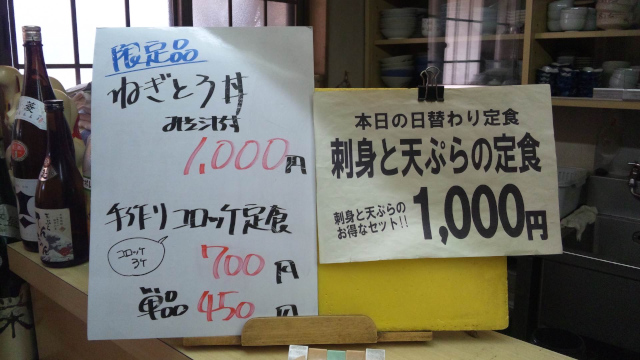 限定品
ねぎとろ丼
みそ汁付
1,000円
手作りコロッケ定食
コロッケ
3ケ
700円
単品 450円
本日の日替わり定食
刺身と天ぷらの定食
刺身と天ぷらの
お得なセット!!
1,000円